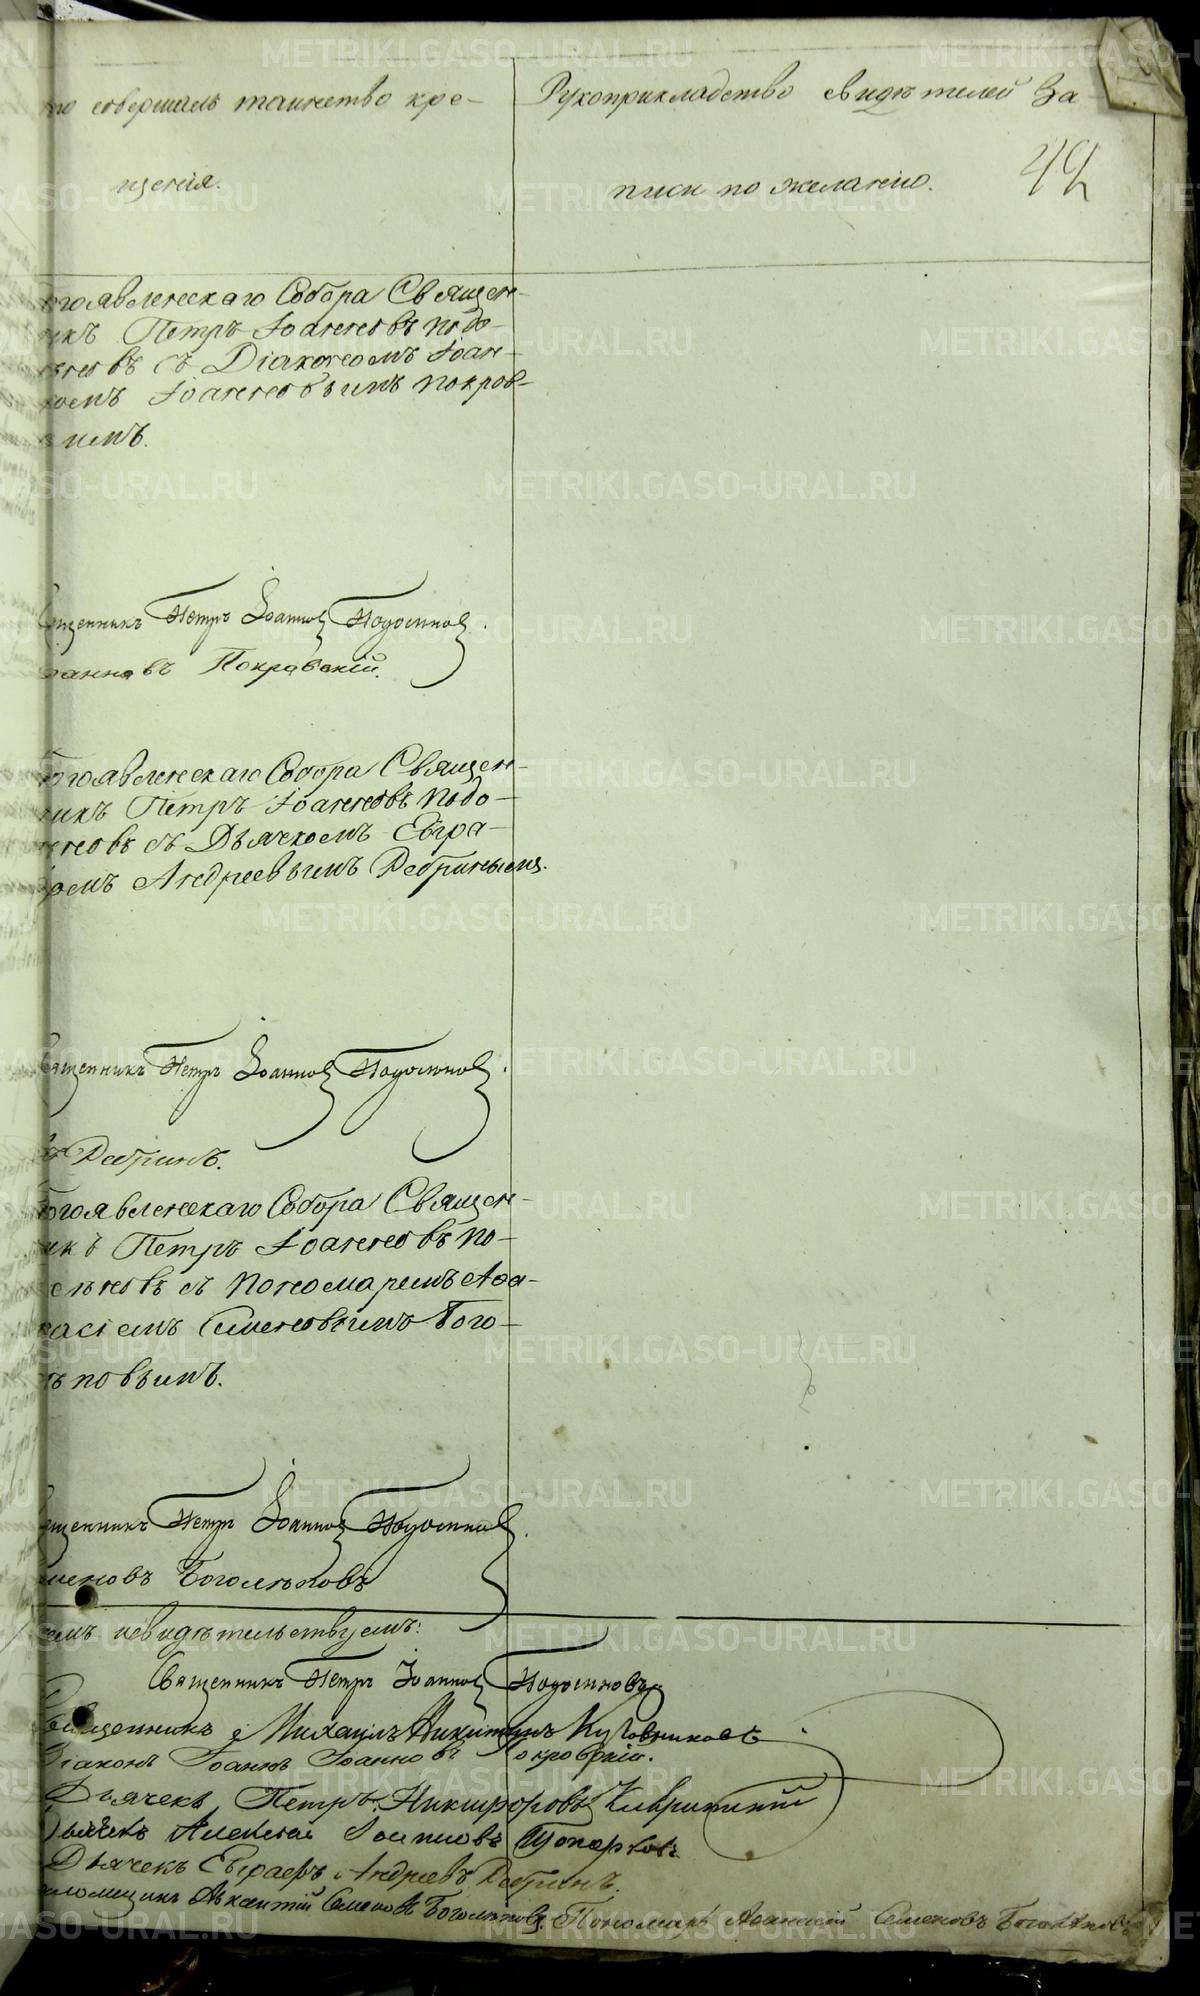 то совершалъ таинство кре-
щенія.
Рукоприкладство свидѣтелей за-
писи по желанію.
42
огоявленскаго Собора Священ-
икъ Петръ Іоанновъ Подо-
новъ съ Діакономъ Іоан-
номъ Іоанновымъ Покров-
имъ.
ященникъ Петръ Іоанновъ Подосиновъ.
оанновъ Покровскій.
Богоявленскаго Собора Священ-
никъ Петръ Іоанновъ Подо-
новъ съ Дьячкомъ Евгра-
фомъ Андреевымъ Ребринымъ.
Священникъ Петръ Іоанновъ Подосиновъ.
въ Ребринъ.
Богоявленскаго Собора Священ-
икъ Петръ Іоанновъ По-
новъ съ Пономаремъ Аѳа-
насіемъ Семеновымъ Бого-
ѣповымъ.
ященникъ Петръ Іоанновъ Подосиновъ.
меновъ Боголѣповъ
емъ и свидѣтельствуемъ:
Священникъ Петръ Іоанновъ Подосиновъ
Священникъ Михаилъ Никитинъ
Діаконъ Іоаннъ Іоанновъ Покровскій.
Дьячекъ Петръ Никифоровъ
Дьячекъ Алексѣй Топорковъ
Дьячекъ Евграфъ Андреевъ Ребринъ.
Авксентій Семеновъ Боголѣповъ. Пономарь Аѳанасій Семеновъ Боголѣповъ
METRIKI.GASO-URAL.RU